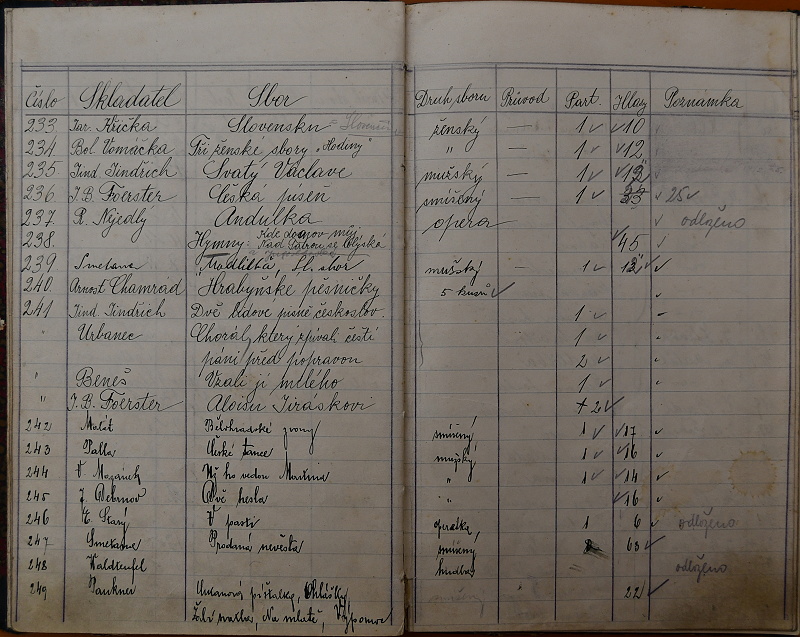 Číslo Skladatel Sbor Druh sboru Průvod Part. Hlay Poznámka
233. Jar. Křička Slovensku ženský — 1 ✓ ✓10
234. Bol. Vomáčka Tři ženské sbory „Hodiny" " 1 ✓ ✓12
235 Jind. Jindřich Svatý Václave mužský — 1 ✓
236. J.B. Foerster Česká píseň smíšený — 1 ✓ 25 ✓
237. R. Nejedly Andulka opera odloženo
238. Hymny: Kde domov můj ✓45
Nad Tatrou se blýská
239 Smetana Modlitba, sbor mužský - 1 ✓
240. Arnošt Chamrád Hrabyňské pěsničky 5 kusů ✓
241 Jind. Jindřich Dvě lidové písně českoslov. 1 ✓
" Urbanec Chorál, který zpívali čeští 1 ✓
páni před popravou 2 ✓
" Beneš Vzali ji milého 1 ✓
" J.B. Foerster Aloisu Jiráskovi 2 ✓
242 Malát Bělohradské zvony smíšený, 1 ✓ ✓17 ✓
243 Palla České tance mužský, 1 ✓ ✓16
244 Už ho vedou Martina " 1 ✓ ✓14 ✓
245 Dvě hesla " ✓16
246 Starý V pasti operetka, 1 6 ✓ odloženo
247 Smetana Prodaná nevěsta smíšený 63 ✓
248 Waldteufel hudba, odloženo
249 Paukner 22 ✓
Na mlatě,